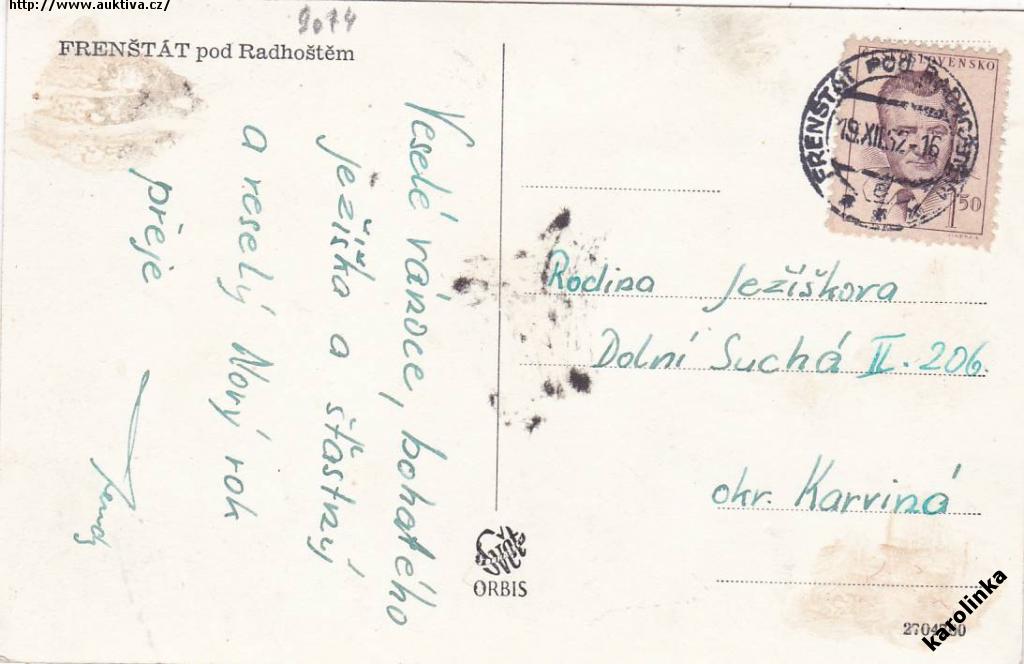 http://www.auktiva.cz/
2074
FRENŠTÁT pod Radhoštěm
Veselé vánoce, bohatého
ježíška a šťastný
a veselý Nový rok
přeje
ČESKOSLOVENSKO
1.50
FRENŠTÁT POD RADHOŠTĚM
19.XII.52-16
Rodina Ježíškova
Dolní Suchá II. 206.
okr. Karviná
ORBIS
karolinka